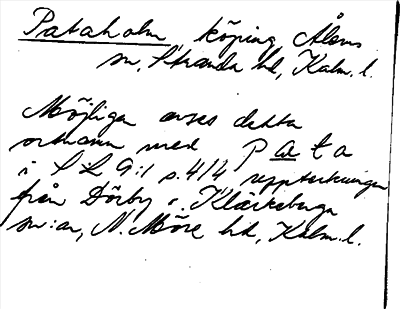 Pataholm köping, Ålems
sn, Stranda hd, Kalm. l.
Möjligen avses detta
ortnamn med pata
i SL 9:1 s. 414 uppteckningen
från Dörby o. Kläckeberga
sn:ar, N. Möre hd, Kalm. l.